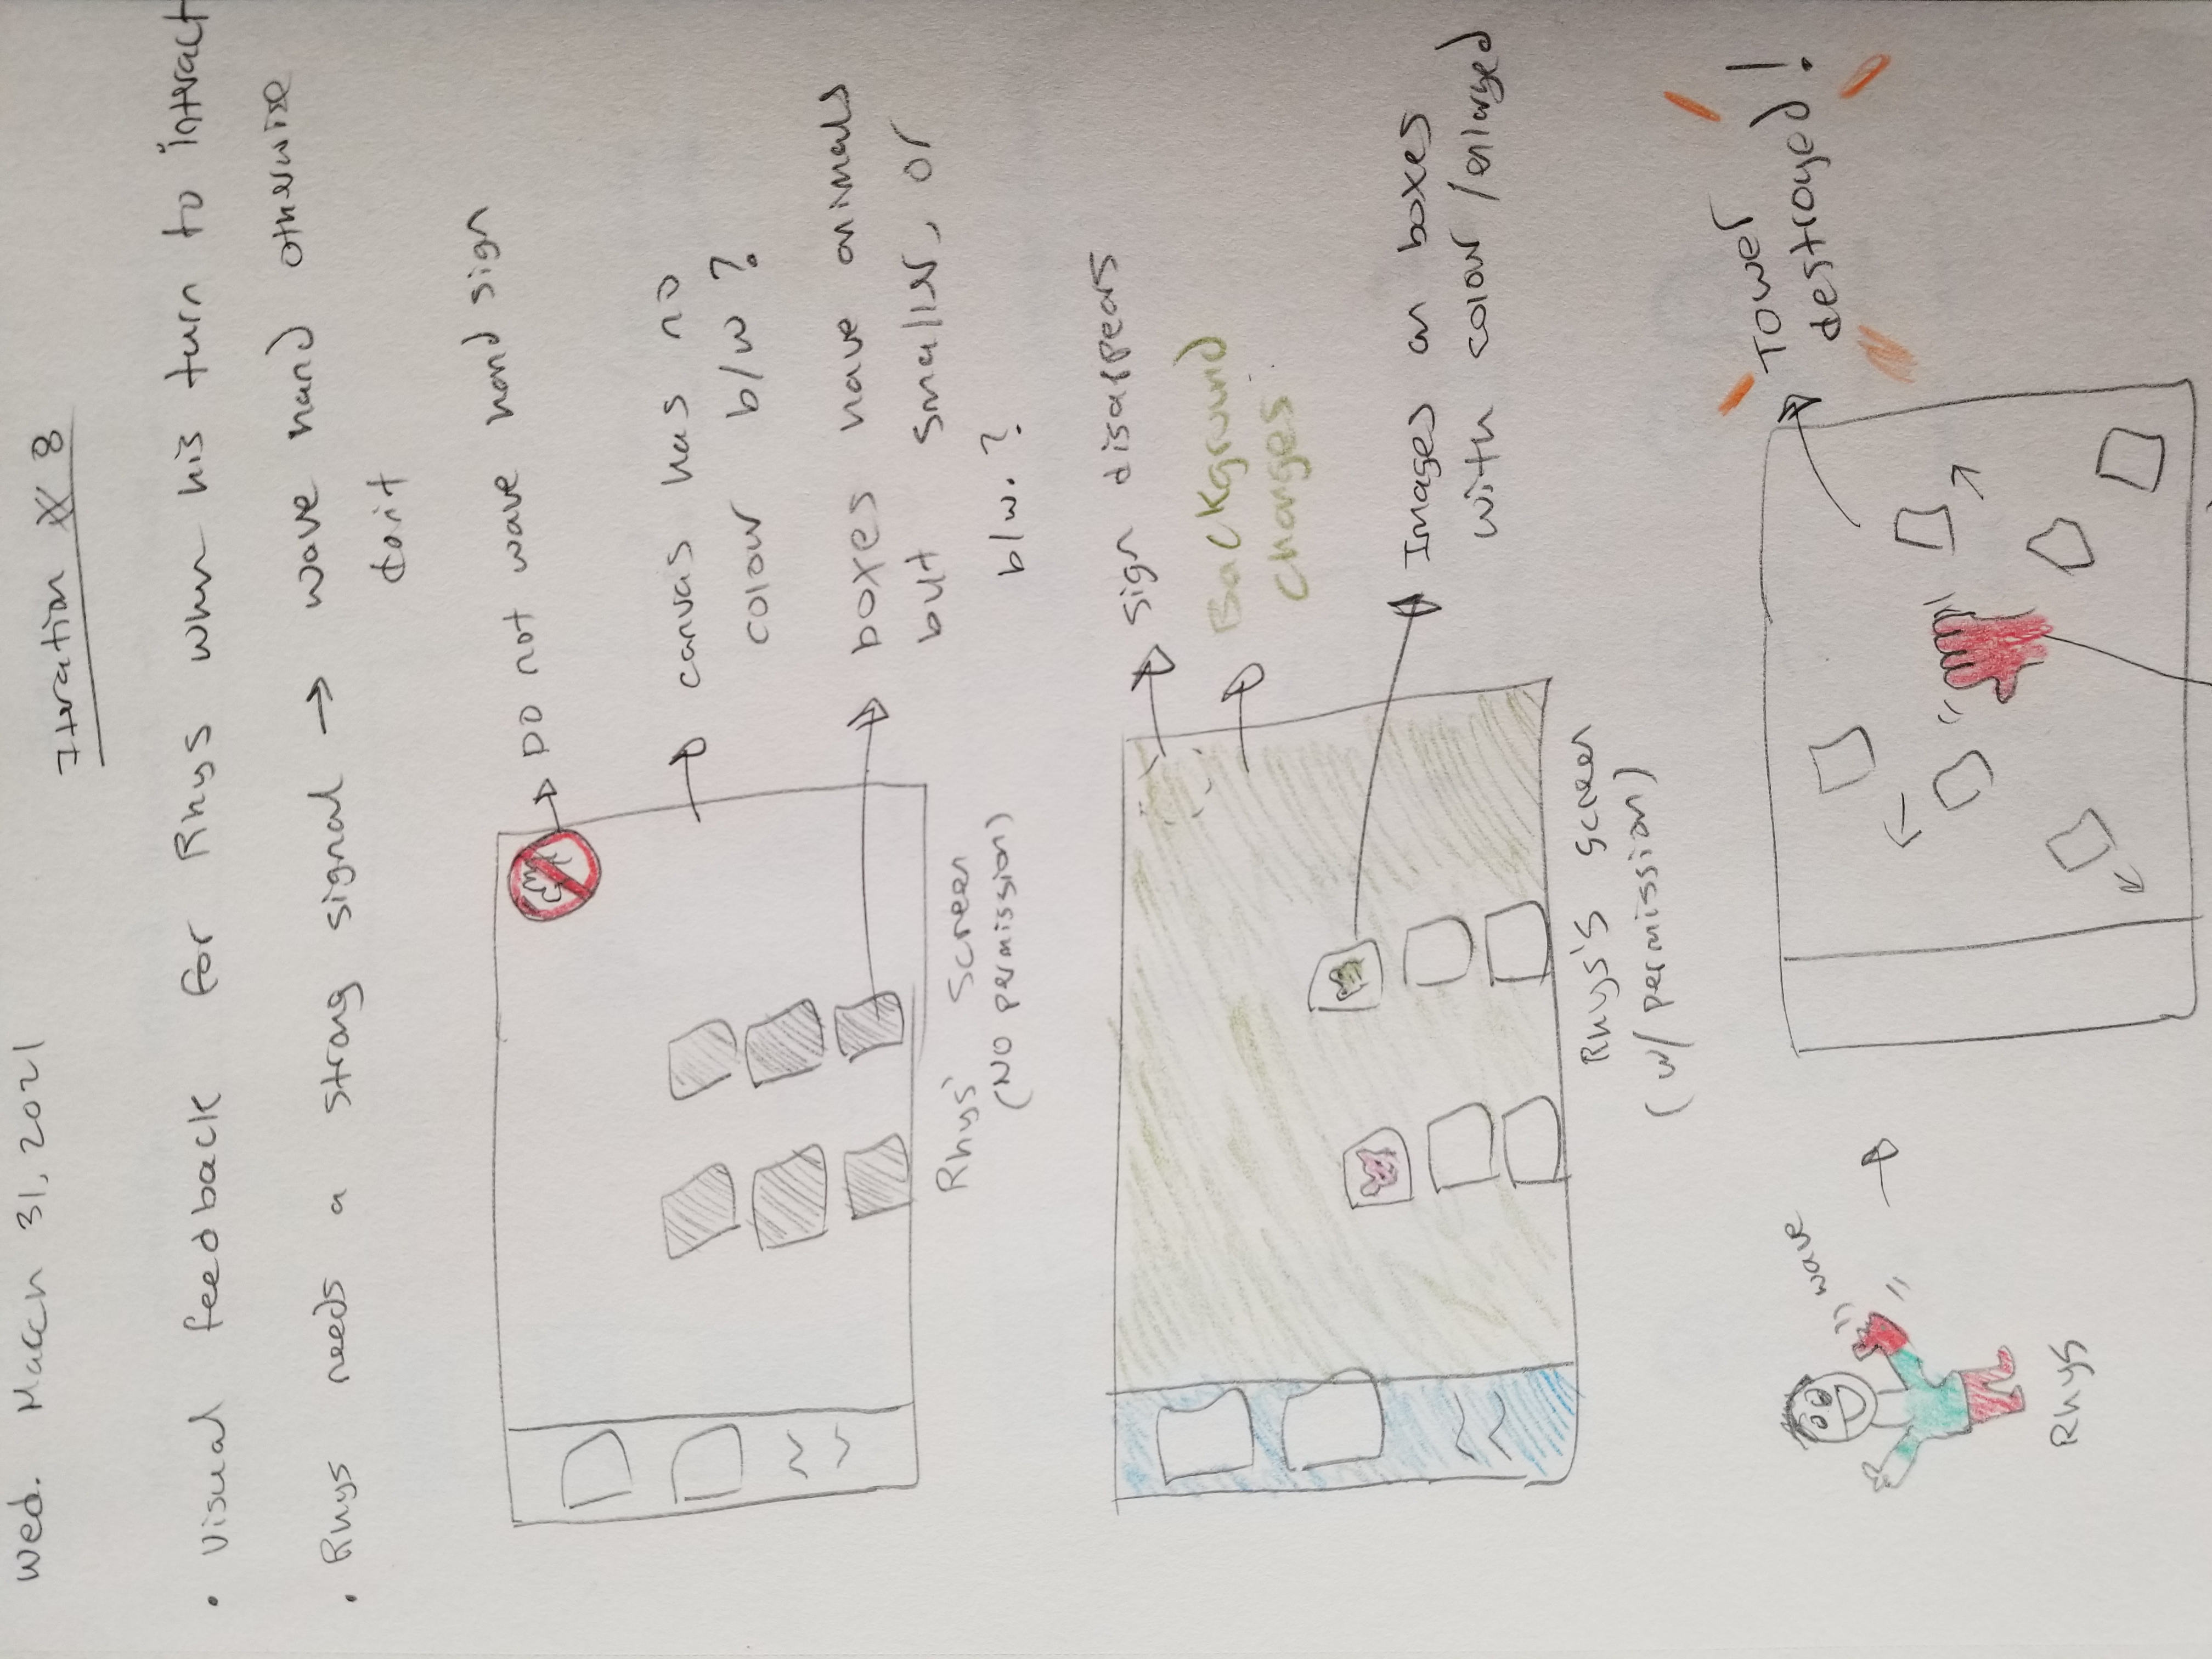 Wed. March 31, 2021
Iteration 8
• Visual feedback for Rhys when his turn to interact
• Rhys needs a strong signal → wave hand otherwise
don't
DO not wave hand sign
canvas has no
colour b/w?
boxes have animals
but smaller, or
b/w.?
Rhys' Screen
(NO permission)
sign disappears
Background
changes
Images on boxes
with colour/enlarged
Rhys's screen
(w/ permission)
wave
Rhys
Tower
destroyed!